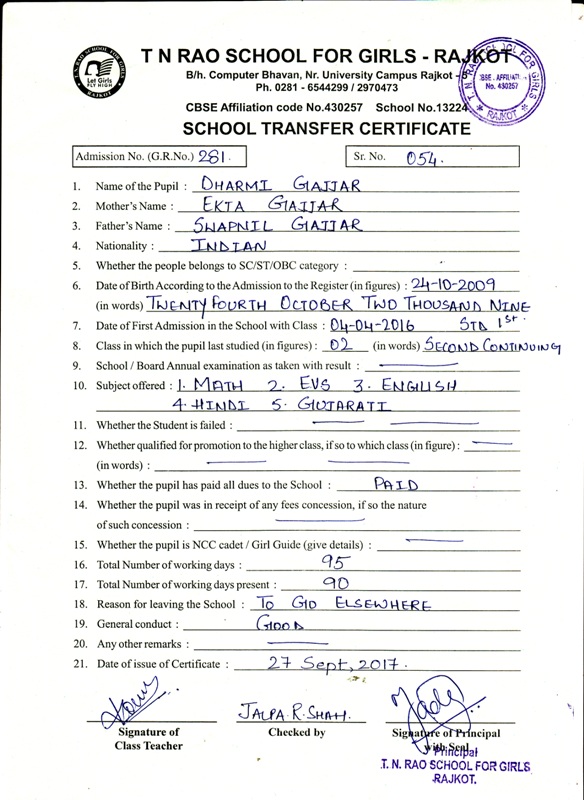 T N RAO SCHOOL FOR GIRLS - RAJKOT
B/h. Computer Bhavan, Nr. University Campus Rajkot - 5
Ph. 0281 - 6544299 / 2970473
CBSE Affiliation code No.430257 School No.13224
T. N. RAO SCHOOL FOR GIRLS
Let Girls
FLY HIGH
RAJKOT
T. N. RAO SCHOOL FOR GIRLS
CBSE. AFFILIATI
No. 430257
* RAJKOT *
SCHOOL TRANSFER CERTIFICATE
Admission No. (G.R.No.) 281. Sr. No. 054.
1. Name of the Pupil : DHARMI GAJJAR
2. Mother's Name : EKTA GAJJAR
3. Father's Name : SWAPNIL GAJJAR
4. Nationality : INDIAN
5. Whether the people belongs to SC/ST/OBC category :
6. Date of Birth According to the Admission to the Register (in figures) : 24-10-2009
(in words) TWENTY FOURTH OCTOBER TWO THOUSAND NINE
7. Date of First Admission in the School with Class : 04-04-2016 STD 1st.
8. Class in which the pupil last studied (in figures) : 02 (in words) SECOND CONTINUING
9. School / Board Annual examination as taken with result :
10. Subject offered : 1. MATH 2. EVS 3. ENGLISH
4. HINDI 5. GUJARATI
11. Whether the Student is failed :
12. Whether qualified for promotion to the higher class, if so to which class (in figure) :
(in words) :
13. Whether the pupil has paid all dues to the School : PAID
14. Whether the pupil was in receipt of any fees concession, if so the nature
of such concession :
15. Whether the pupil is NCC cadet / Girl Guide (give details) :
16. Total Number of working days : 95
17. Total Number of working days present : 90
18. Reason for leaving the School : TO GO ELSEWHERE
19. General conduct : GOOD
20. Any other remarks :
21. Date of issue of Certificate : 27 Sept, 2017.
JALPA.R.SHAH.
Signature of Class Teacher
Checked by
Signature of Principal
with Seal
Principal
T. N. RAO SCHOOL FOR GIRLS
RAJKOT.